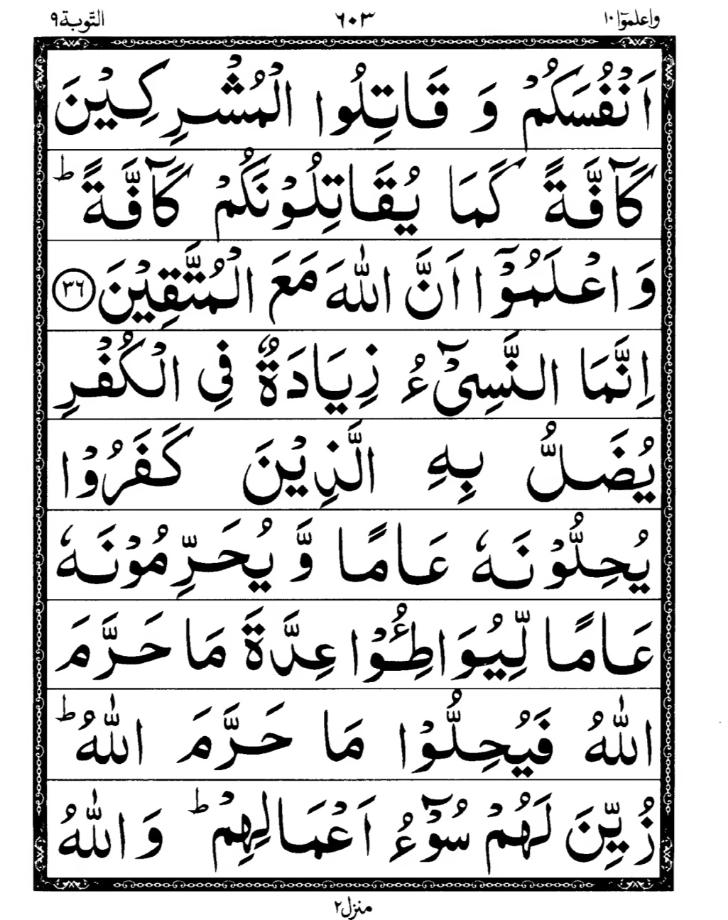 واعلموٓا ١٠ ٦٠٣ التّوبة ٩
اَنْفُسَكُمْ وَ قَاتِلُوا الْمُشْرِكِيْنَ
كَآفَّةً كَمَا يُقَاتِلُوْنَكُمْ كَآفَّةً ؕ
وَ اعْلَمُوْۤا اَنَّ اللّٰهَ مَعَ الْمُتَّقِيْنَ ﴿٣٦﴾
اِنَّمَا النَّسِیْٓءُ زِيَادَةٌ فِی الْكُفْرِ
يُضَلُّ بِهِ الَّذِيْنَ كَفَرُوْا
يُحِلُّوْنَهٗ عَامًا وَّ يُحَرِّمُوْنَهٗ
عَامًا لِّيُوَاطِـُٔوْا عِدَّةَ مَا حَرَّمَ
اللّٰهُ فَيُحِلُّوْا مَا حَرَّمَ اللّٰهُ ؕ
زُيِّنَ لَهُمْ سُوْٓءُ اَعْمَالِهِمْ ؕ وَ اللّٰهُ
منزل ٢